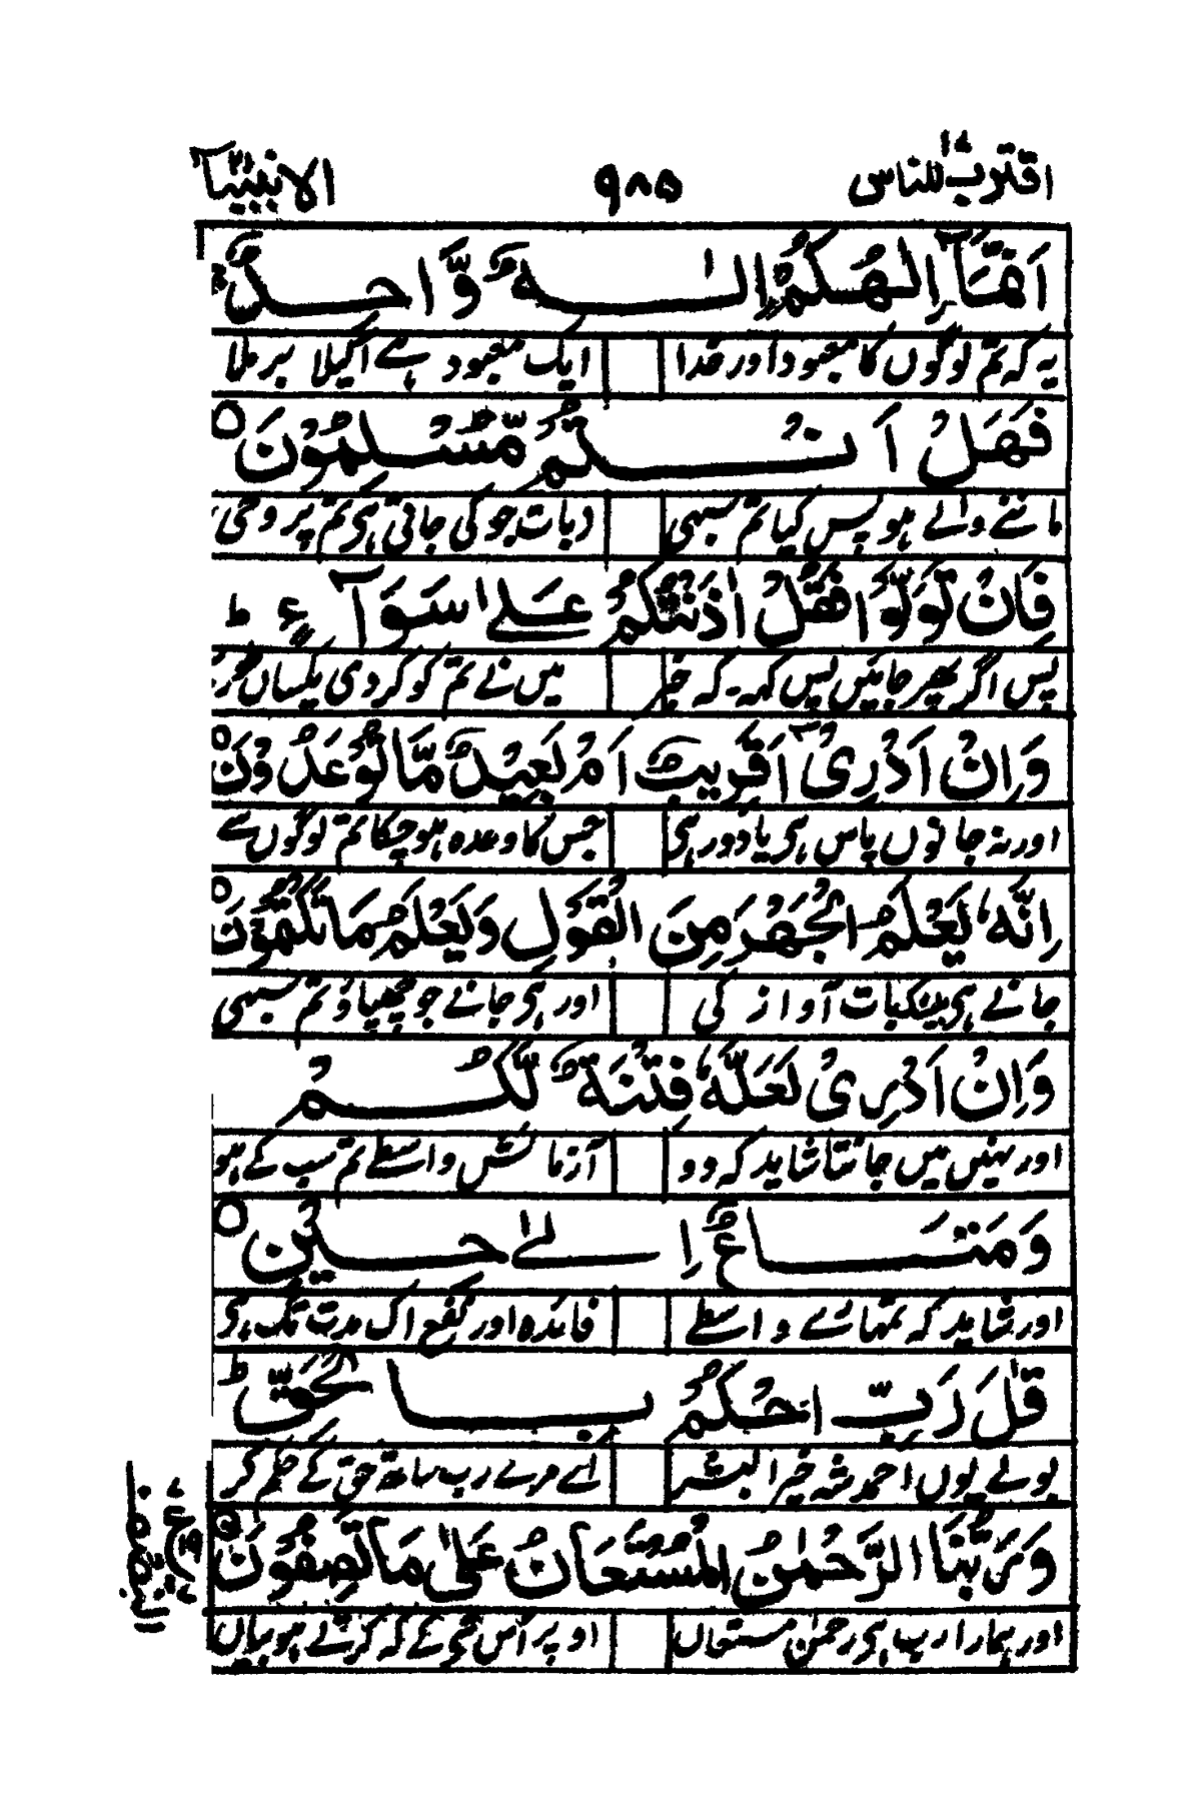 اقترب للناس ١٧
٩٨٥
الانبیآ ٢١
اَنَّمَآ اِلٰهُكُمْ اِلٰهٌ وَّاحِدٌ ۚ
یہ کہ تم لوگوں کا معبود اور خدا ایک معبود ہے اکیلا برملا
فَهَلْ اَنْتُمْ مُّسْلِمُوْنَ ○
ماننے والے ہو پس کیا تم سبھی دبات جو کی جاتی ہی تم پر وحی
فَاِنْ تَوَلَّوْا فَقُلْ اٰذَنْتُكُمْ عَلٰى سَوَآءٍ ؕ
پس اگر پھر جائیں پس کہہ۔ کہ خبر میں نے تم کو کر دی یکساں
وَاِنْ اَدْرِیْۤ اَقَرِیْبٌ اَمْ بَعِیْدٌ مَّا تُوْعَدُوْنَ ○
اور نہ جانوں پاس ہی یا دور ہی جس کا وعدہ ہو چکا تم لوگوں سے
اِنَّهٗ یَعْلَمُ الْجَهْرَ مِنَ الْقَوْلِ وَیَعْلَمُ مَا تَكْتُمُوْنَ ○
جانے ہی بات آواز کی اور ہی جانے جو چھپاؤ تم سبھی
وَاِنْ اَدْرِیْ لَعَلَّهٗ فِتْنَةٌ لَّكُمْ
اور نہیں میں جانتا شاید کہ وو آزمائش واسطے تم سب کے ہو
وَمَتَاعٌ اِلٰى حِیْنٍ ○
اور شاید کہ تمہارے واسطے فائدہ اور نفع اک مدت تک ہی
قٰلَ رَبِّ احْكُمْ بِالْحَقِّ ؕ
بولے یوں احمد شہ خیر البشر اے مرے رب ساتھ حق کے حکم کر
وَرَبُّنَا الرَّحْمٰنُ الْمُسْتَعَانُ عَلٰى مَا تَصِفُوْنَ ○
اور ہمارا رب ہی رحمٰن مستعاں اوپر اس شی کے کہ کرتے ہو بیاں